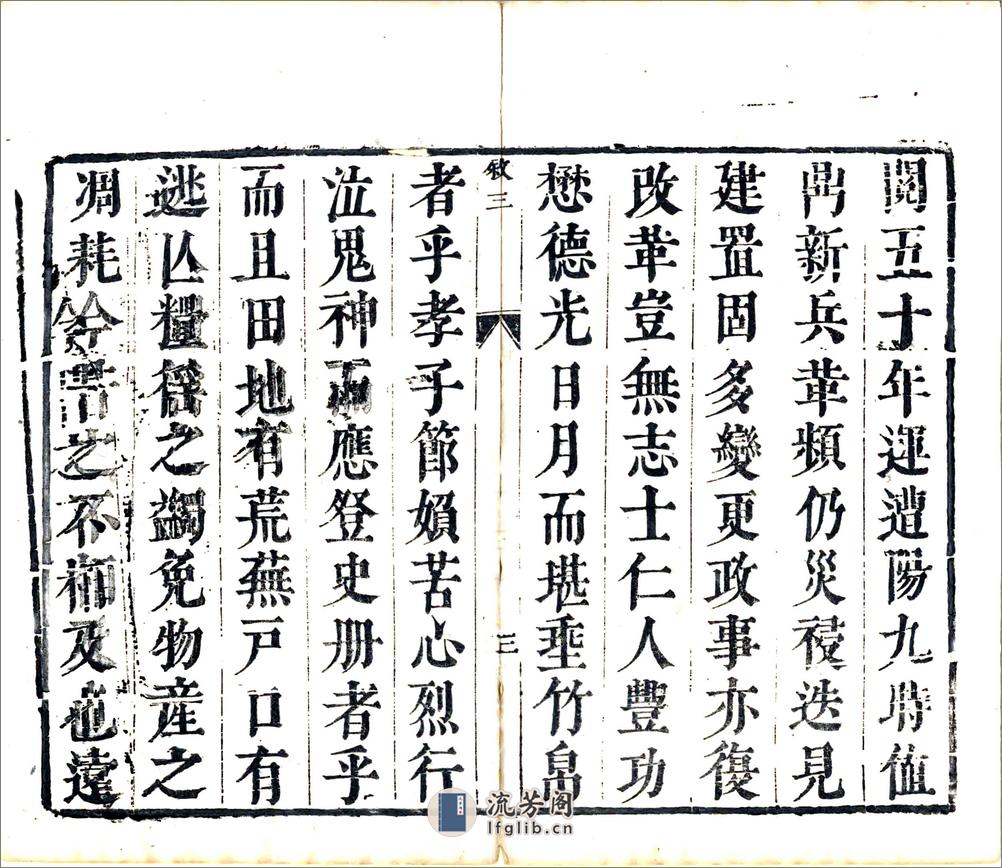 閱五十年運遭陽九時値
鼎新兵革頻仍災祲迭見
建置固多變更政事亦復
改革豈無志士仁人豐功
懋德光日月而堪垂竹帛
敘三
三
者乎孝子節婦苦心烈行
泣鬼神而應登史册者乎
而且田地有荒蕪戸口有
逃亾糧徭之蠲免物產之
凋耗今昔之不相及也遠
流芳阁
lfglib.cn